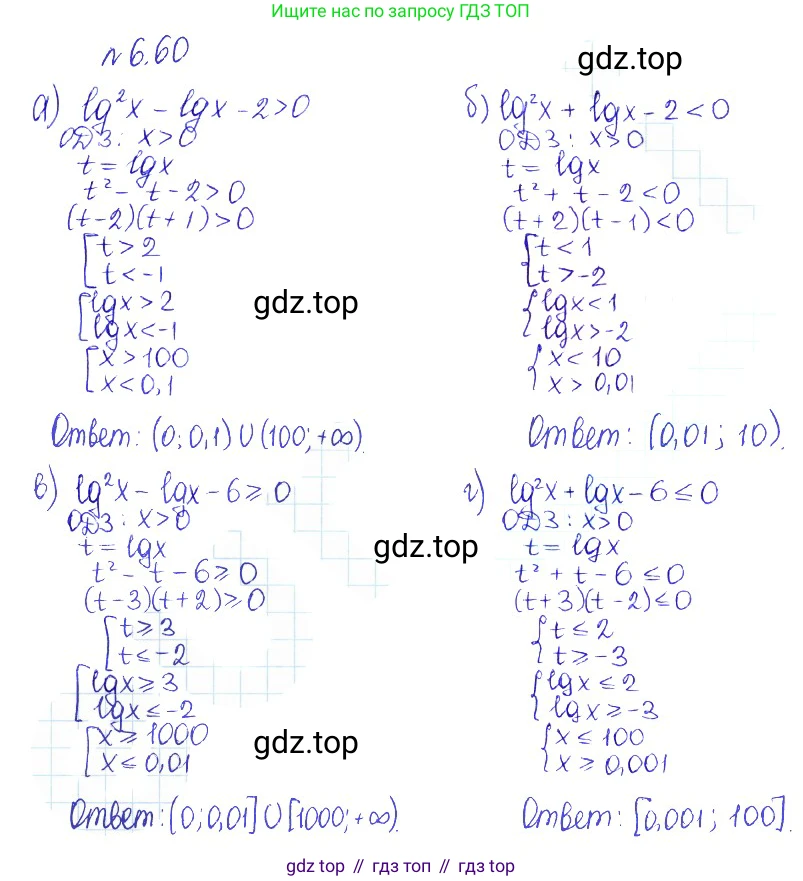 Ищите нас по запросу ГДЗ ТОП
№6.60
gdz.top
а) lg²x - lgx - 2 > 0
ОДЗ: x > 0
t = lgx
t² - t - 2 > 0
(t-2)(t+1) > 0
[ t > 2
t < -1
[ lgx > 2
lgx < -1
[ x > 100
x < 0,1
Ответ: (0; 0,1) ∪ (100; +∞).
gdz.top
б) lg²x + lgx - 2 < 0
ОДЗ: x > 0
t = lgx
t² + t - 2 < 0
(t+2)(t-1) < 0
{ t < 1
t > -2
{ lgx < 1
lgx > -2
{ x < 10
x > 0,01
Ответ: (0,01; 10).
в) lg²x - lgx - 6 ⩾ 0
ОДЗ: x > 0
t = lgx
t² - t - 6 ⩾ 0
(t-3)(t+2) ⩾ 0
[ t ⩾ 3
t ⩽ -2
[ lgx ⩾ 3
lgx ⩽ -2
[ x ⩾ 1000
x ⩽ 0,01
Ответ: (0; 0,01] ∪ [1000; +∞).
gdz.top
г) lg²x + lgx - 6 ⩽ 0
ОДЗ: x > 0
t = lgx
t² + t - 6 ⩽ 0
(t+3)(t-2) ⩽ 0
{ t ⩽ 2
t ⩾ -3
{ lgx ⩽ 2
lgx ⩾ -3
{ x ⩽ 100
x ⩾ 0,001
Ответ: [0,001; 100].
gdz.top
gdz top // гдз топ // gdz top